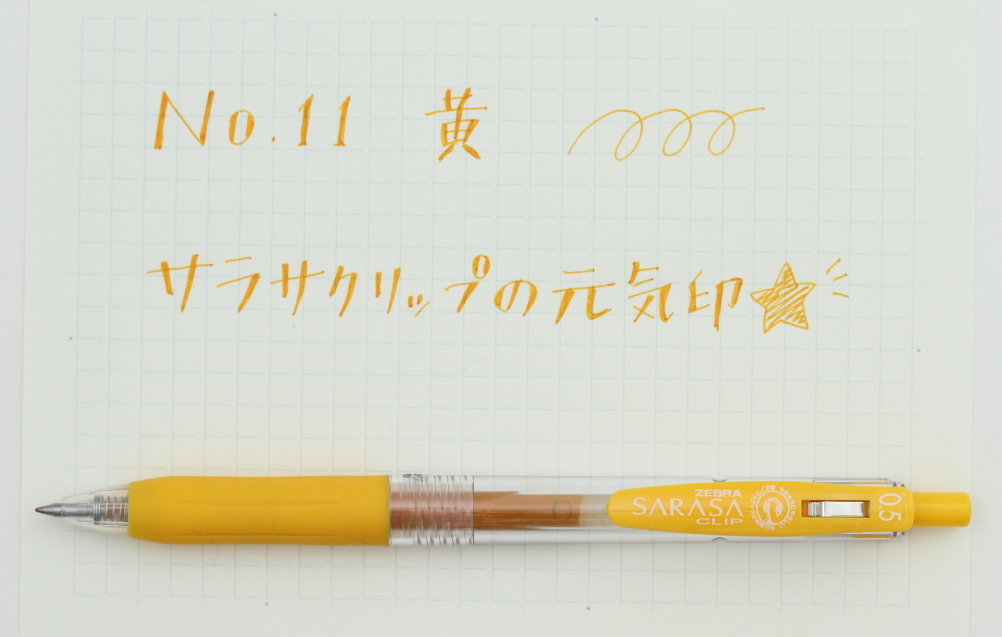 No.11 黄
サラサクリップの元気印
ZEBRA
SARASA
CLIP
0.5